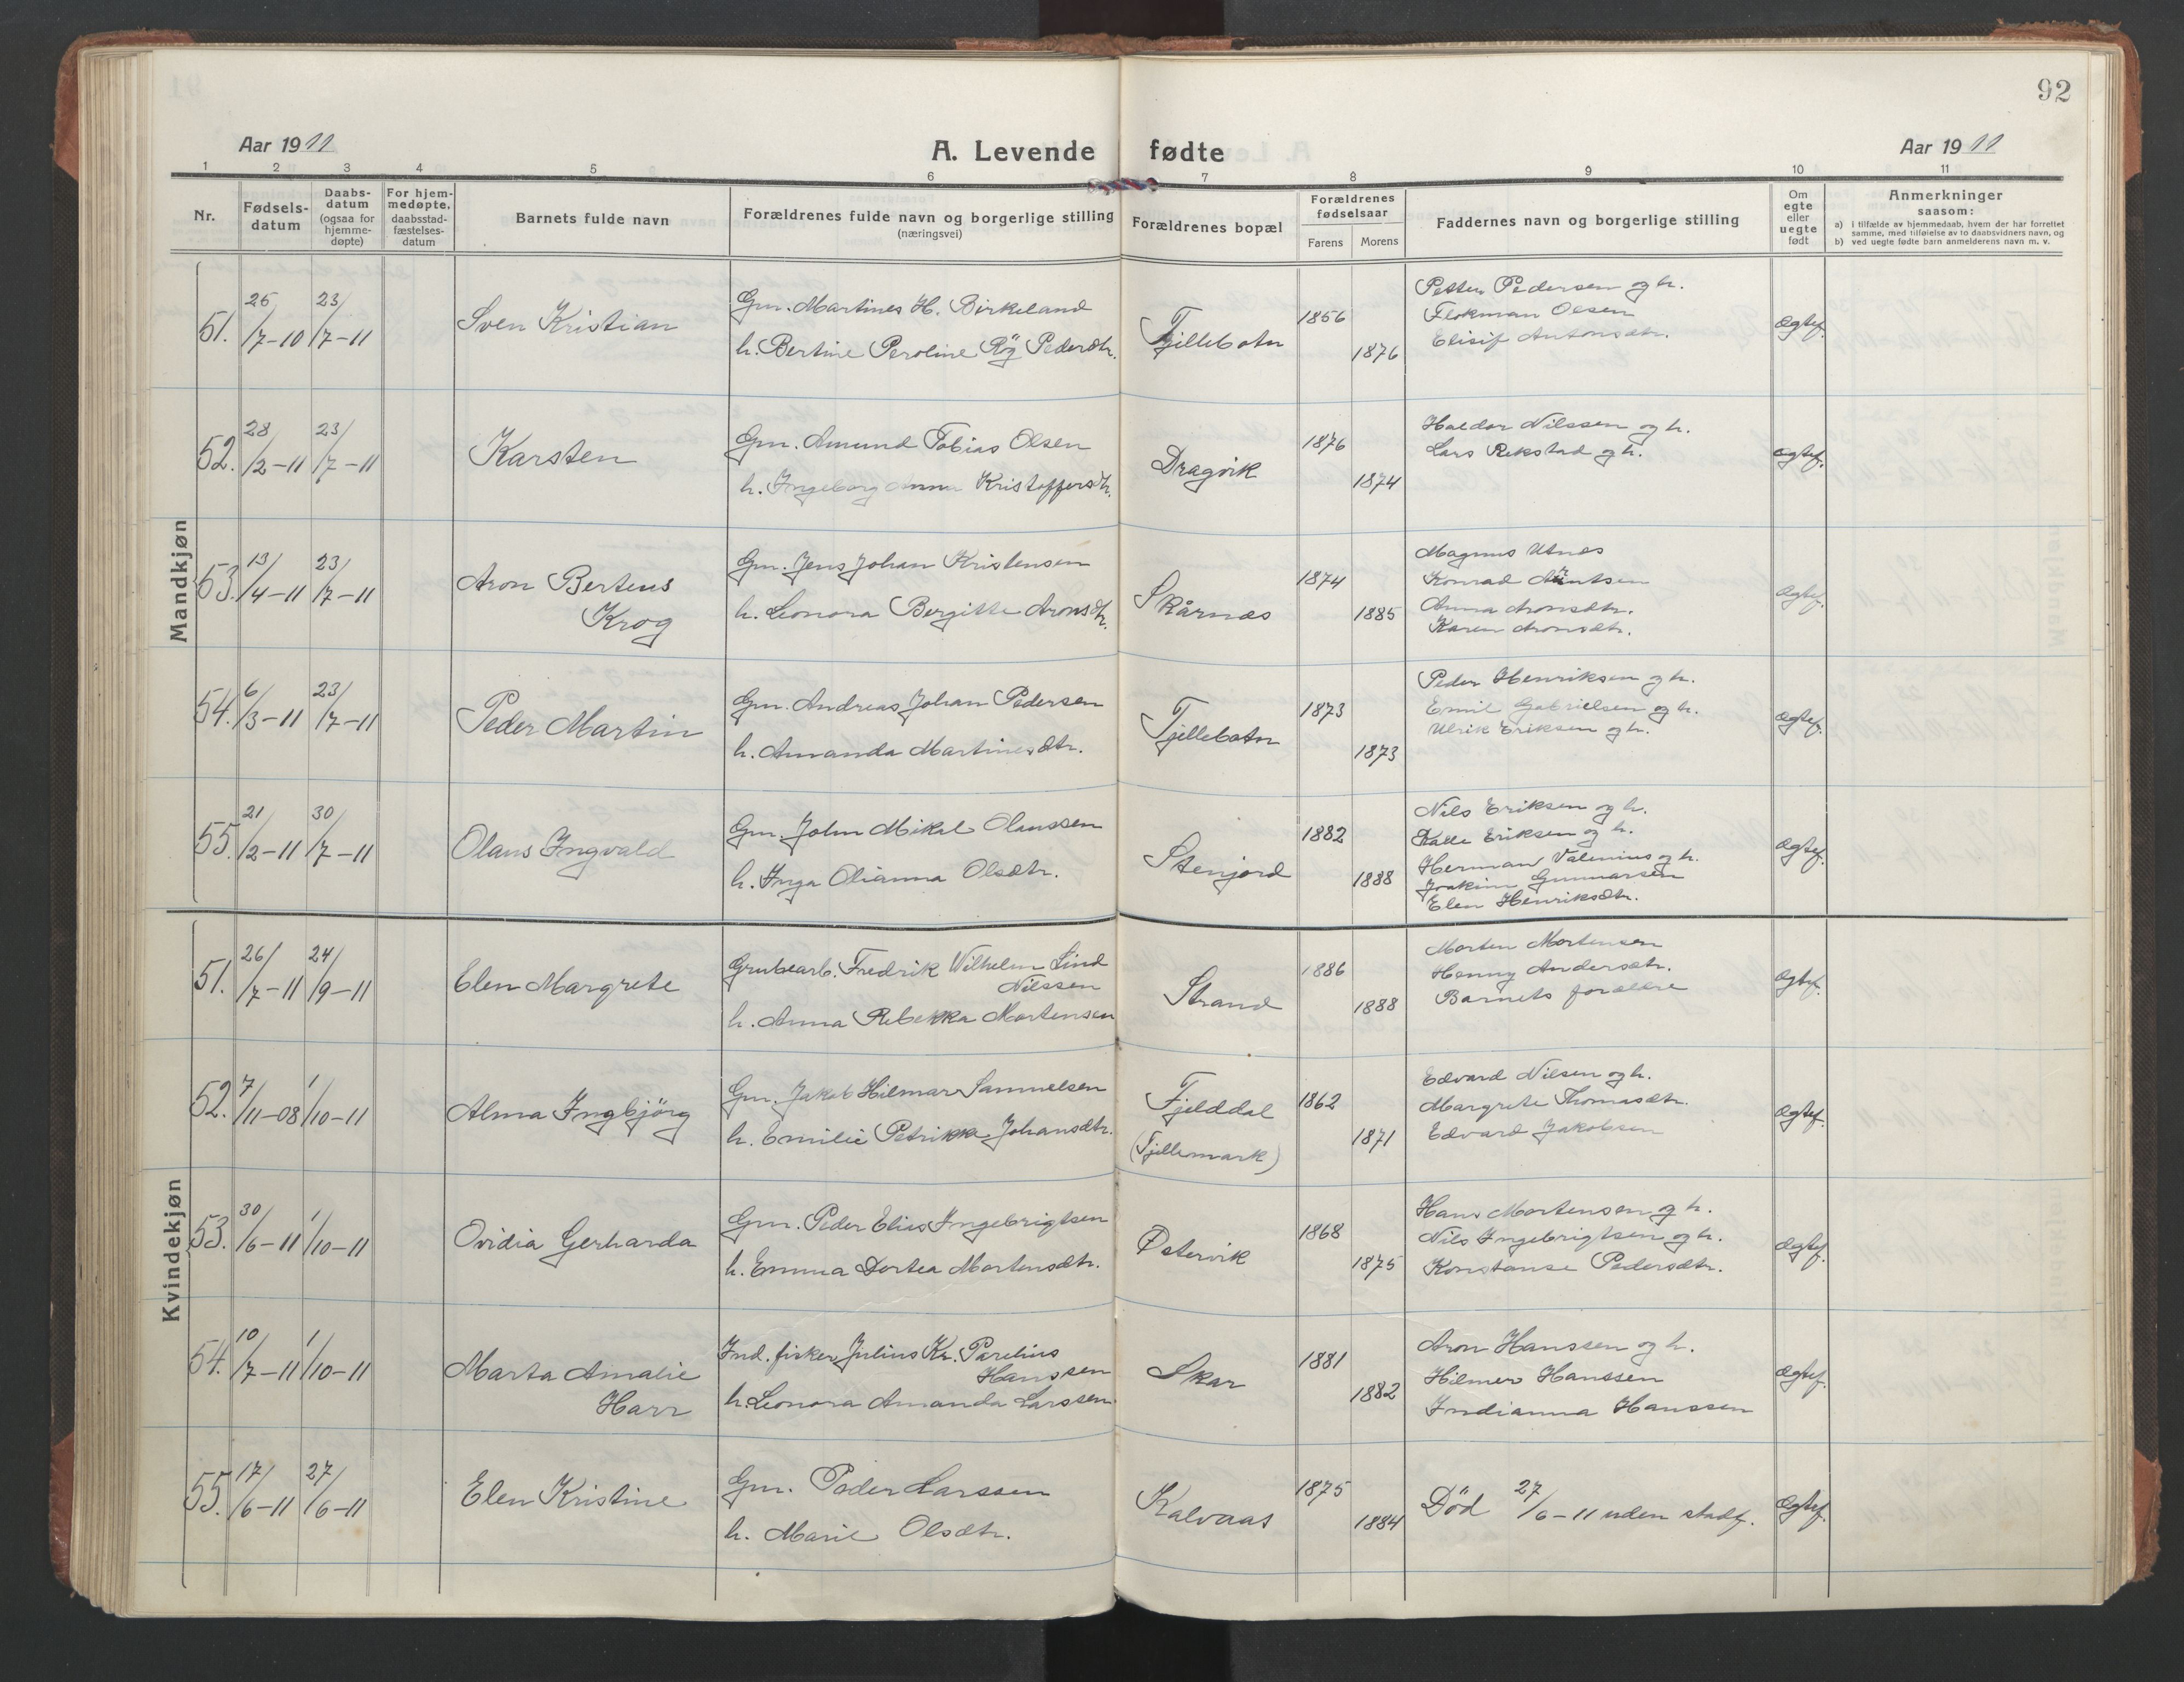 92
Aar 1911
A. Levende fødte
Aar 1911
1 2 3 4 5 6 7 8 9 10 11
Nr.
Fødsels-
datum
Daabs-
datum
(ogsaa for
hjemme-
døpte)
For hjem-
medøpte,
daabsstad-
fæstelses-
datum
Barnets fulde navn
Forældrenes fulde navn og borgerlige stilling
(næringsvei)
Forældrenes bopæl
Forældrenes
fødselsaar
Farens Morens
Faddernes navn og borgerlige stilling
Om
egte
eller
uegte
født
Anmerkninger
saasom:
a) i tilfælde av hjemmedaab, hvem der har forrettet
samme, med tilføielse av to daabsvidners navn, og
b) ved uegte fødte barn anmelderens navn m. v.
Mandkjøn
51. 26/7-10 23/7-11
Sven Kristian
Gm. Martines H. Birkeland
h. Bertine Peroline Røg Pedersdtr.
Tjillebotn
1856
1876
Petter Pedersen og h.
Flokman Olsen
Elisif Antonsdtr.
Ægtef.
52. 28/2-11 23/7-11
Karsten
Gm. Amund Tobias Olsen
h. Ingeborg Anna Kristoffersdtr.
Dragvik
1876
1874
Haldor Nilssen og h.
Lars Rekstad og h.
Ægtef.
53. 13/4-11 23/7-11
Aron Berteus
Krog
Gm. Jens Johan Kristensen
h. Leonora Bergitte Aronsdtr.
Skårnes
1874
1885
Magnus Utnes
Konrad
Anna Aronsdtr.
Karen Aronsdtr.
Ægtef.
54. 6/3-11 23/7-11
Peder Martin
Gm. Andreas Johan Pedersen
h. Amanda Martinesdtr.
Tjillebotn
1873
1873
Peder Henriksen og h.
Emil Gabrielsen og h.
Ulrik Eriksen og h.
Ægtef.
55. 21/2-11 30/7-11
Olaus Ingvald
Gm. John Mikal Olaussen
h. Inga Olianna Olsdtr.
Stenjord
1882
1888
Nils Eriksen og h.
Kalle Eriksen og h.
Herman Valenius og h.
Joakim Gunnarsen
Elen Henriksdtr.
Ægtef.
Kvindekjøn
51. 26/7-11 24/9-11
Elen Margrete
Grubearb. Fredrik Wilhelm Lind
Nilssen
h. Anna Rebekka Mortensen
Strand
1886
1888
Morten Mortensen
Henny Andersdtr.
Barnets forældre
Ægtef.
52. 7/11-08 1/10-11
Alma Ingbjörg
Gm. Jakob Hilmar Samuelsen
h. Emilie Petrikke Johansdtr.
Fjelddal
(Tjillemark)
1862
1871
Edvard Nilsen og h.
Margrete Thomasdtr.
Edvard Jakobsen
Ægtef.
53. 30/6-11 1/10-11
Ovidia Gerharda
Gm. Peder Elias Ingebrigtsen
h. Emma Dortea Mortensdtr.
Østervik
1868
1875
Hans Mortensen og h.
Nils Ingebrigtsen og h.
Konstanse Pedersdtr.
Ægtef.
54. 10/7-11 1/10-11
Marta Amalie
Harr
Ind. fisker Julius Kr. Parelius
Hanssen
h. Leonora Amanda Larssen
Skar
1881
1882
Aron Hanssen og h.
Hilmer Hanssen
Indianna Hanssen
Ægtef.
55. 17/6-11 27/6-11
Elen Kristine
Gm. Peder Larssen
h. Marie Olsdtr.
Kalvaas
1875
1884
Död 27/6-11 uden stadf.
Ægtef.